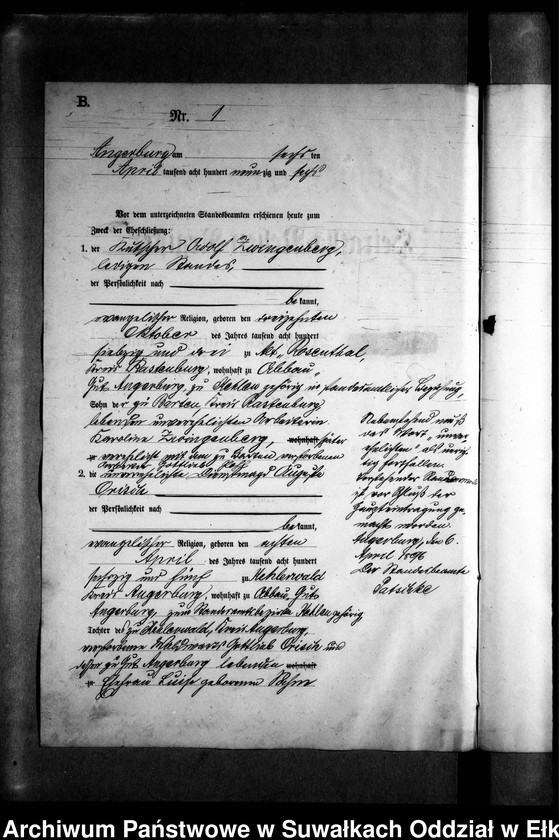 B.
Nr. 1
Angerburg am sechsten
April tausend acht hundert neunzig und sechs
Vor dem unterzeichneten Standesbeamten erschienen heute zum
Zweck der Eheschließung:
1. der Kutscher Adolf Zwingenberg,
ledigen Standes,
der Persönlichkeit nach
bekannt,
evangelischer Religion, geboren den dreizehnten
Oktober des Jahres tausend acht hundert
siebzig und drei zu Rosenthal,
Kreis Rastenburg, wohnhaft zu Abbau
Gut Angerburg, zu Kehlen gehörig in standesamtlicher Beziehung,
Sohn der zu Kreis Rastenburg
lebenden unverehelichten Arbeiterin
Karoline Zwingenberg, wohnhaft später
verehelicht mit dem zu Barten verstorbenen
Gottlieb
2. die unverehelichte Dienstmagd Auguste
der Persönlichkeit nach
bekannt,
evangelischer Religion, geboren den achten
April des Jahres tausend acht hundert
siebzig und fünf zu Kehlerwald
Kreis Angerburg, wohnhaft zu Abbau Gut
Angerburg, zum Standesamtsbezirk Kehlen gehörig
Tochter des zu Kehlerwald, Kreis Angerburg
verstorbenen Gottlieb und
dessen zu Gut Angerburg lebenden wohnhaft
Ehefrau Luise geborenen
Nebenstehend muß
das Wort „unver
ehelichten" als
fortfallen.
Vorstehender
ist vor Schluß der
Haupteintragung ge
macht worden.
Angerburg, den 6.
April 1896
Der Standesbeamte
Archiwum Państwowe w Suwałkach Oddział w Ełk